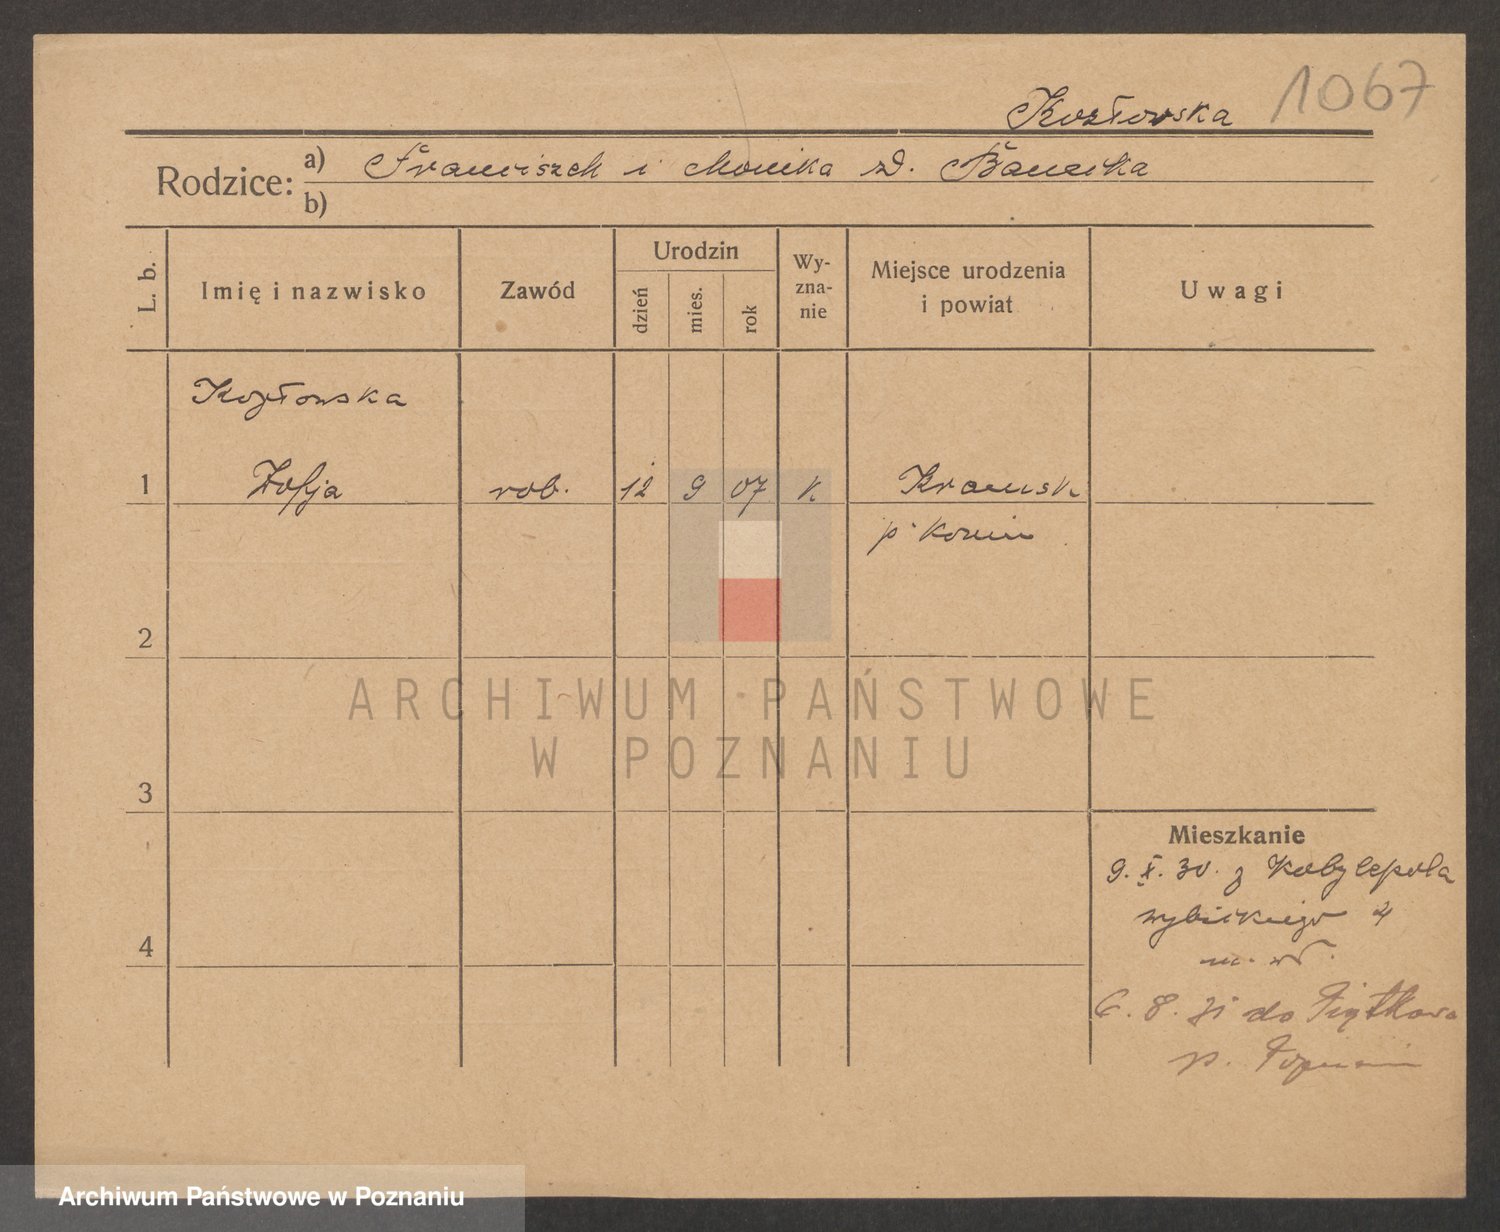 Kozłowska 1067
Rodzice: a) Franciszek i Monika z d.
b)
L. b. Imię i nazwisko Zawód Urodzin dzień mies. rok Wy-zna-nie Miejsce urodzenia i powiat Uwagi
Kozłowska
1 Zofja rob. 12 9 07 k. Kramsk
p. Konin
2
ARCHIWUM PAŃSTWOWE
W POZNANIU
3
Mieszkanie
9. X. 30. z Kobylepola
Wybickiego
4
6. 8. 31 do Piątkowa
p. Poznań
Archiwum Państwowe w Poznaniu